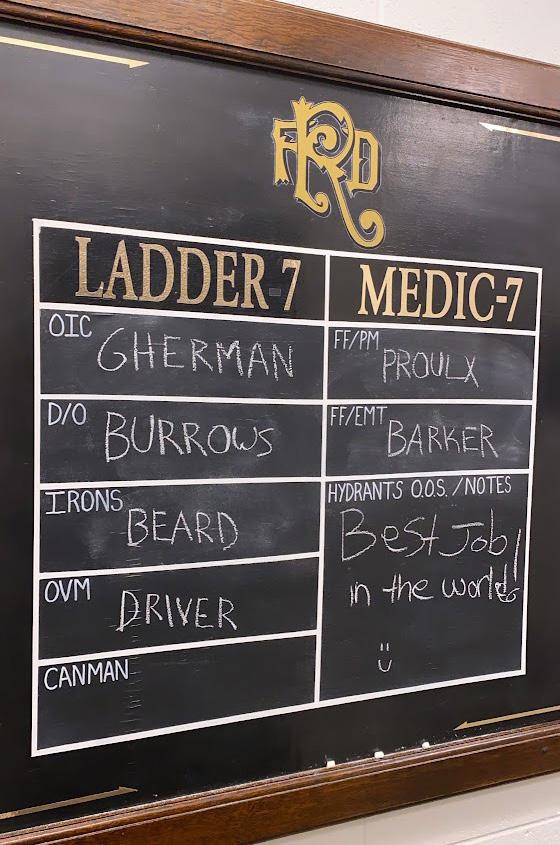 FRD
LADDER-7
OIC GHERMAN
D/O BURROWS
IRONS BEARD
OVM DRIVER
CANMAN
MEDIC-7
FF/PM PROULX
FF/EMT BARKER
HYDRANTS O.O.S. / NOTES
Best Job
in the world!
:)